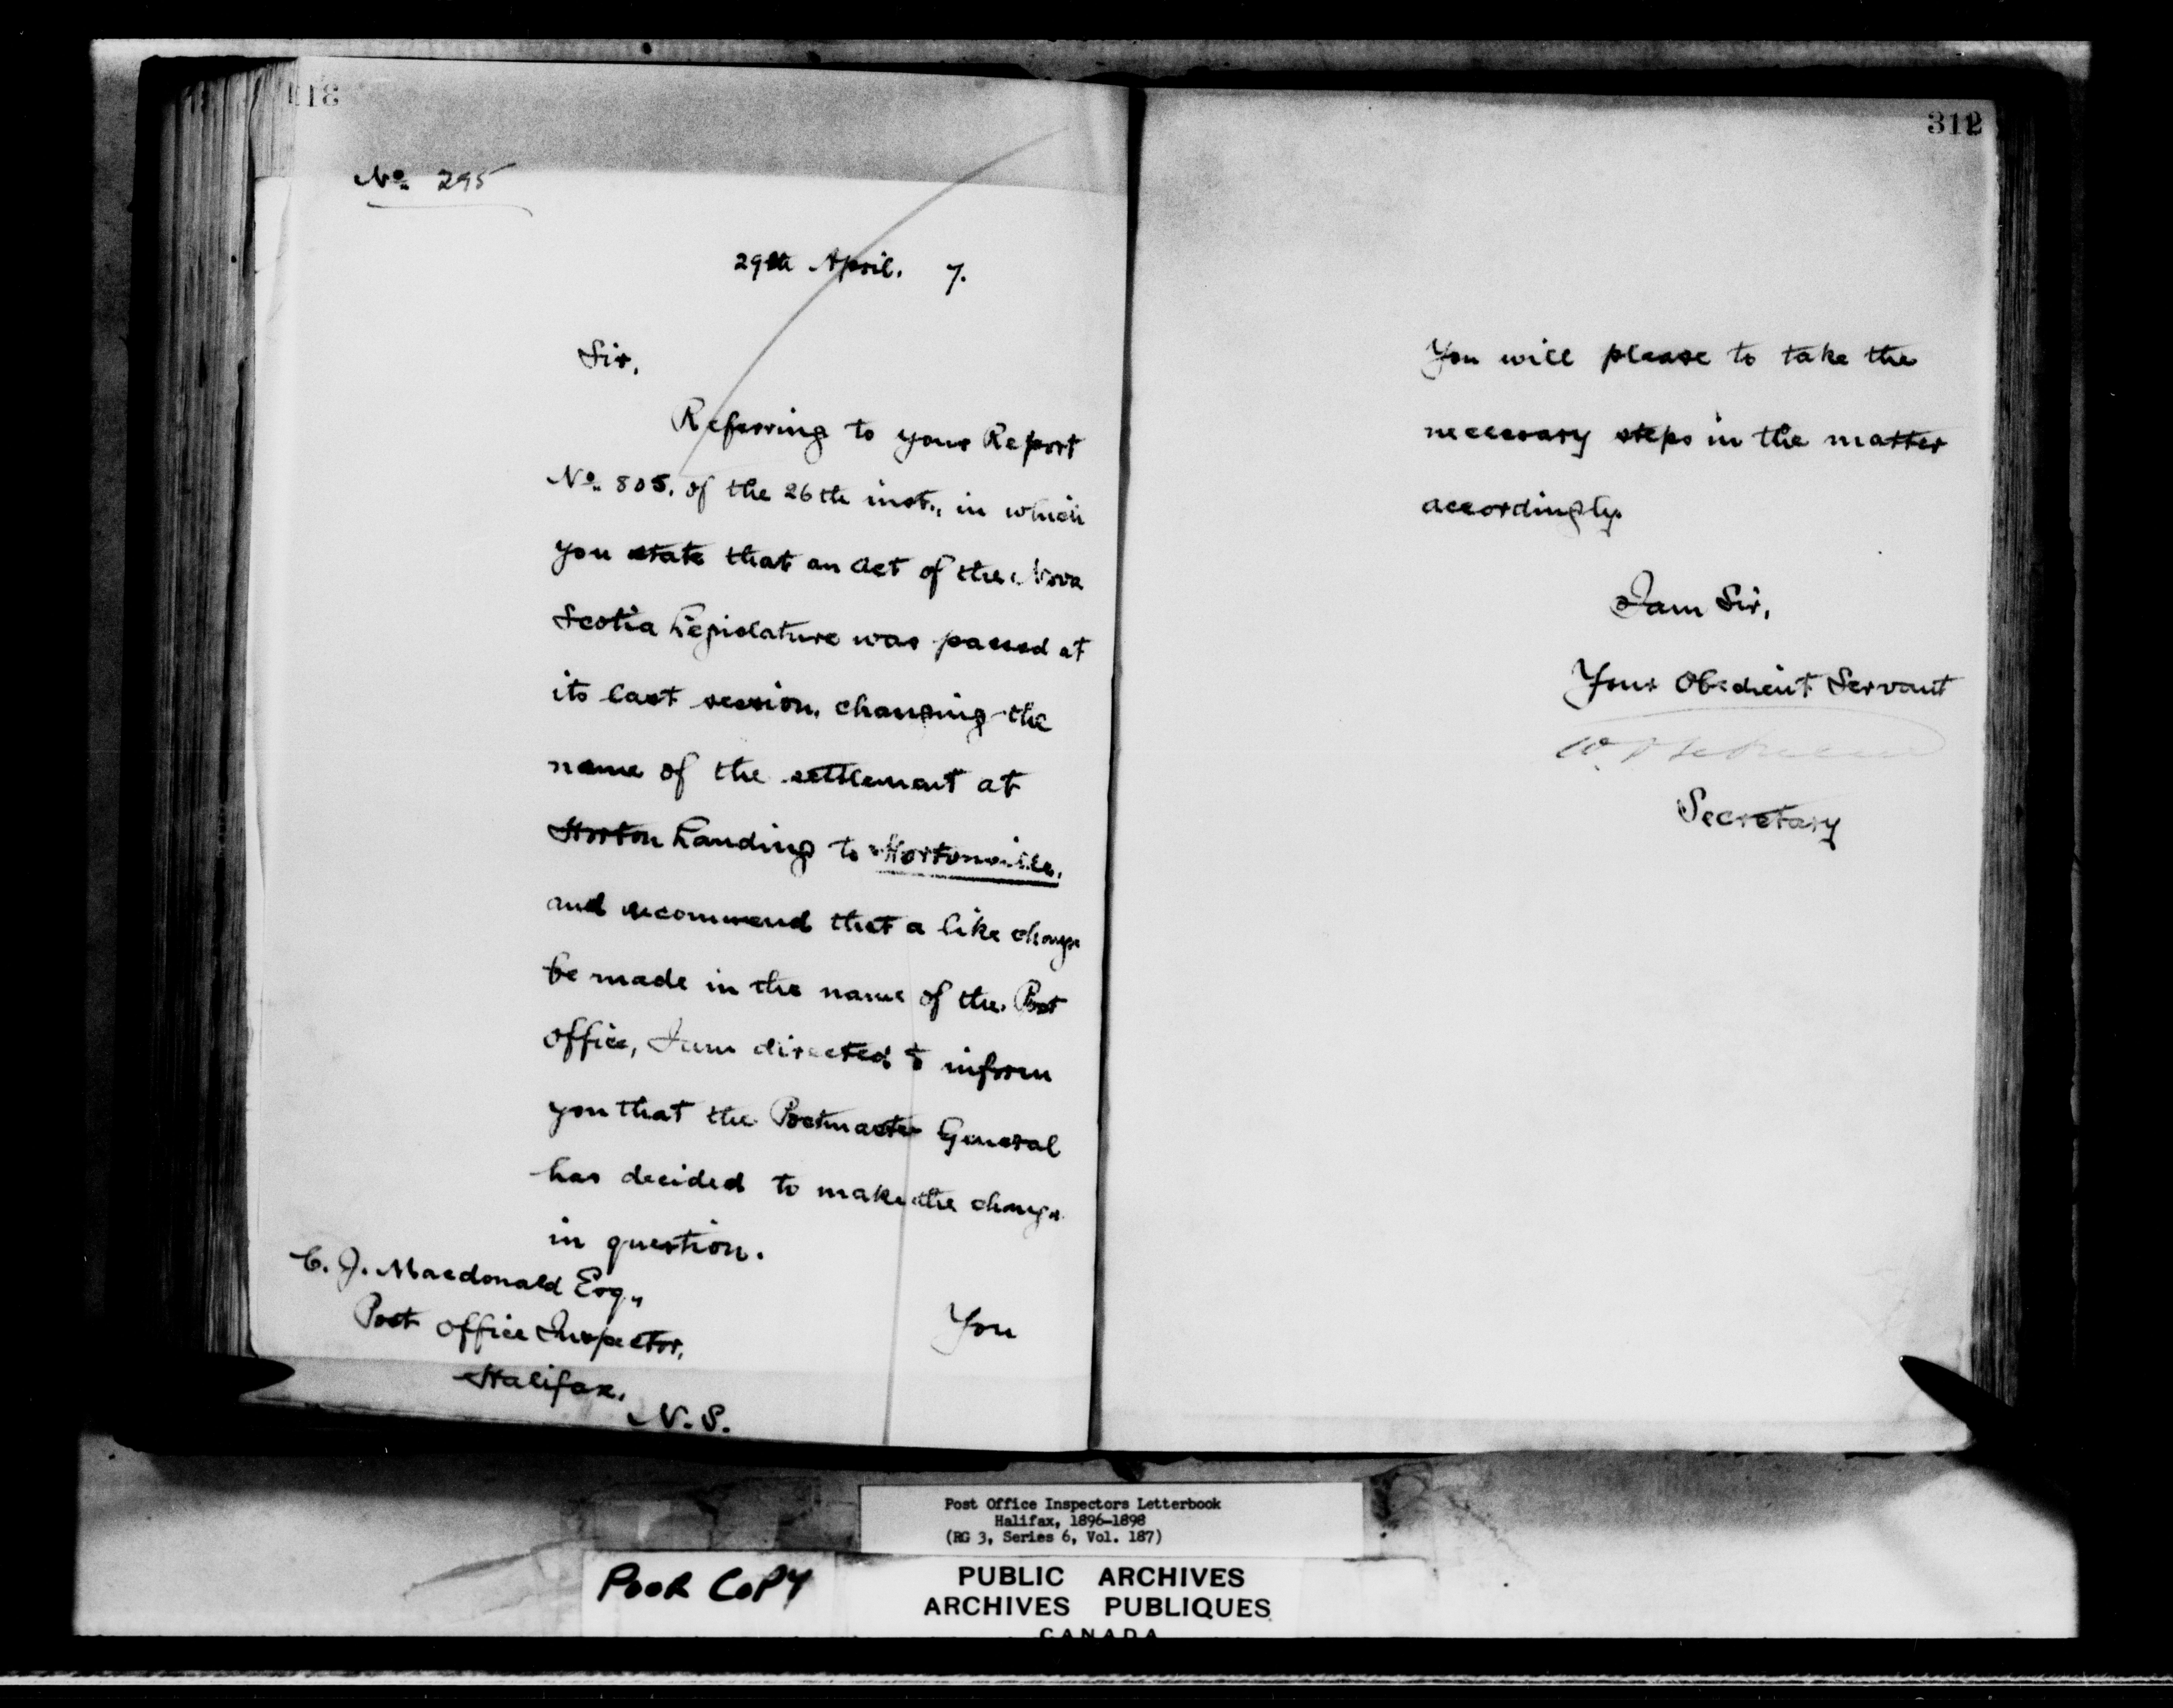 No. 295
29th April. 7.
Sir,
Referring to your Report
No. 805. of the 26th inst., in which
you state that an Act of the Nova
Scotia Legislature was passed at
its last session, changing the
name of the settlement at
Horton Landing to Hortonville,
and recommend that a like change
be made in the name of the Post
Office, I am directed to inform
you that the Postmaster General
has decided to make the change
in question.
C. J. Macdonald Esq.,
Post Office Inspector,
Halifax,
N.S.
You
312
You will please to take the
necessary steps in the matter
accordingly.
I am Sir,
Your Obedient Servant
Secretary
Post Office Inspectors Letterbook
Halifax, 1896-1898
(RG 3, Series 6, Vol. 187)
POOR COPY
PUBLIC ARCHIVES
ARCHIVES PUBLIQUES
CANADA